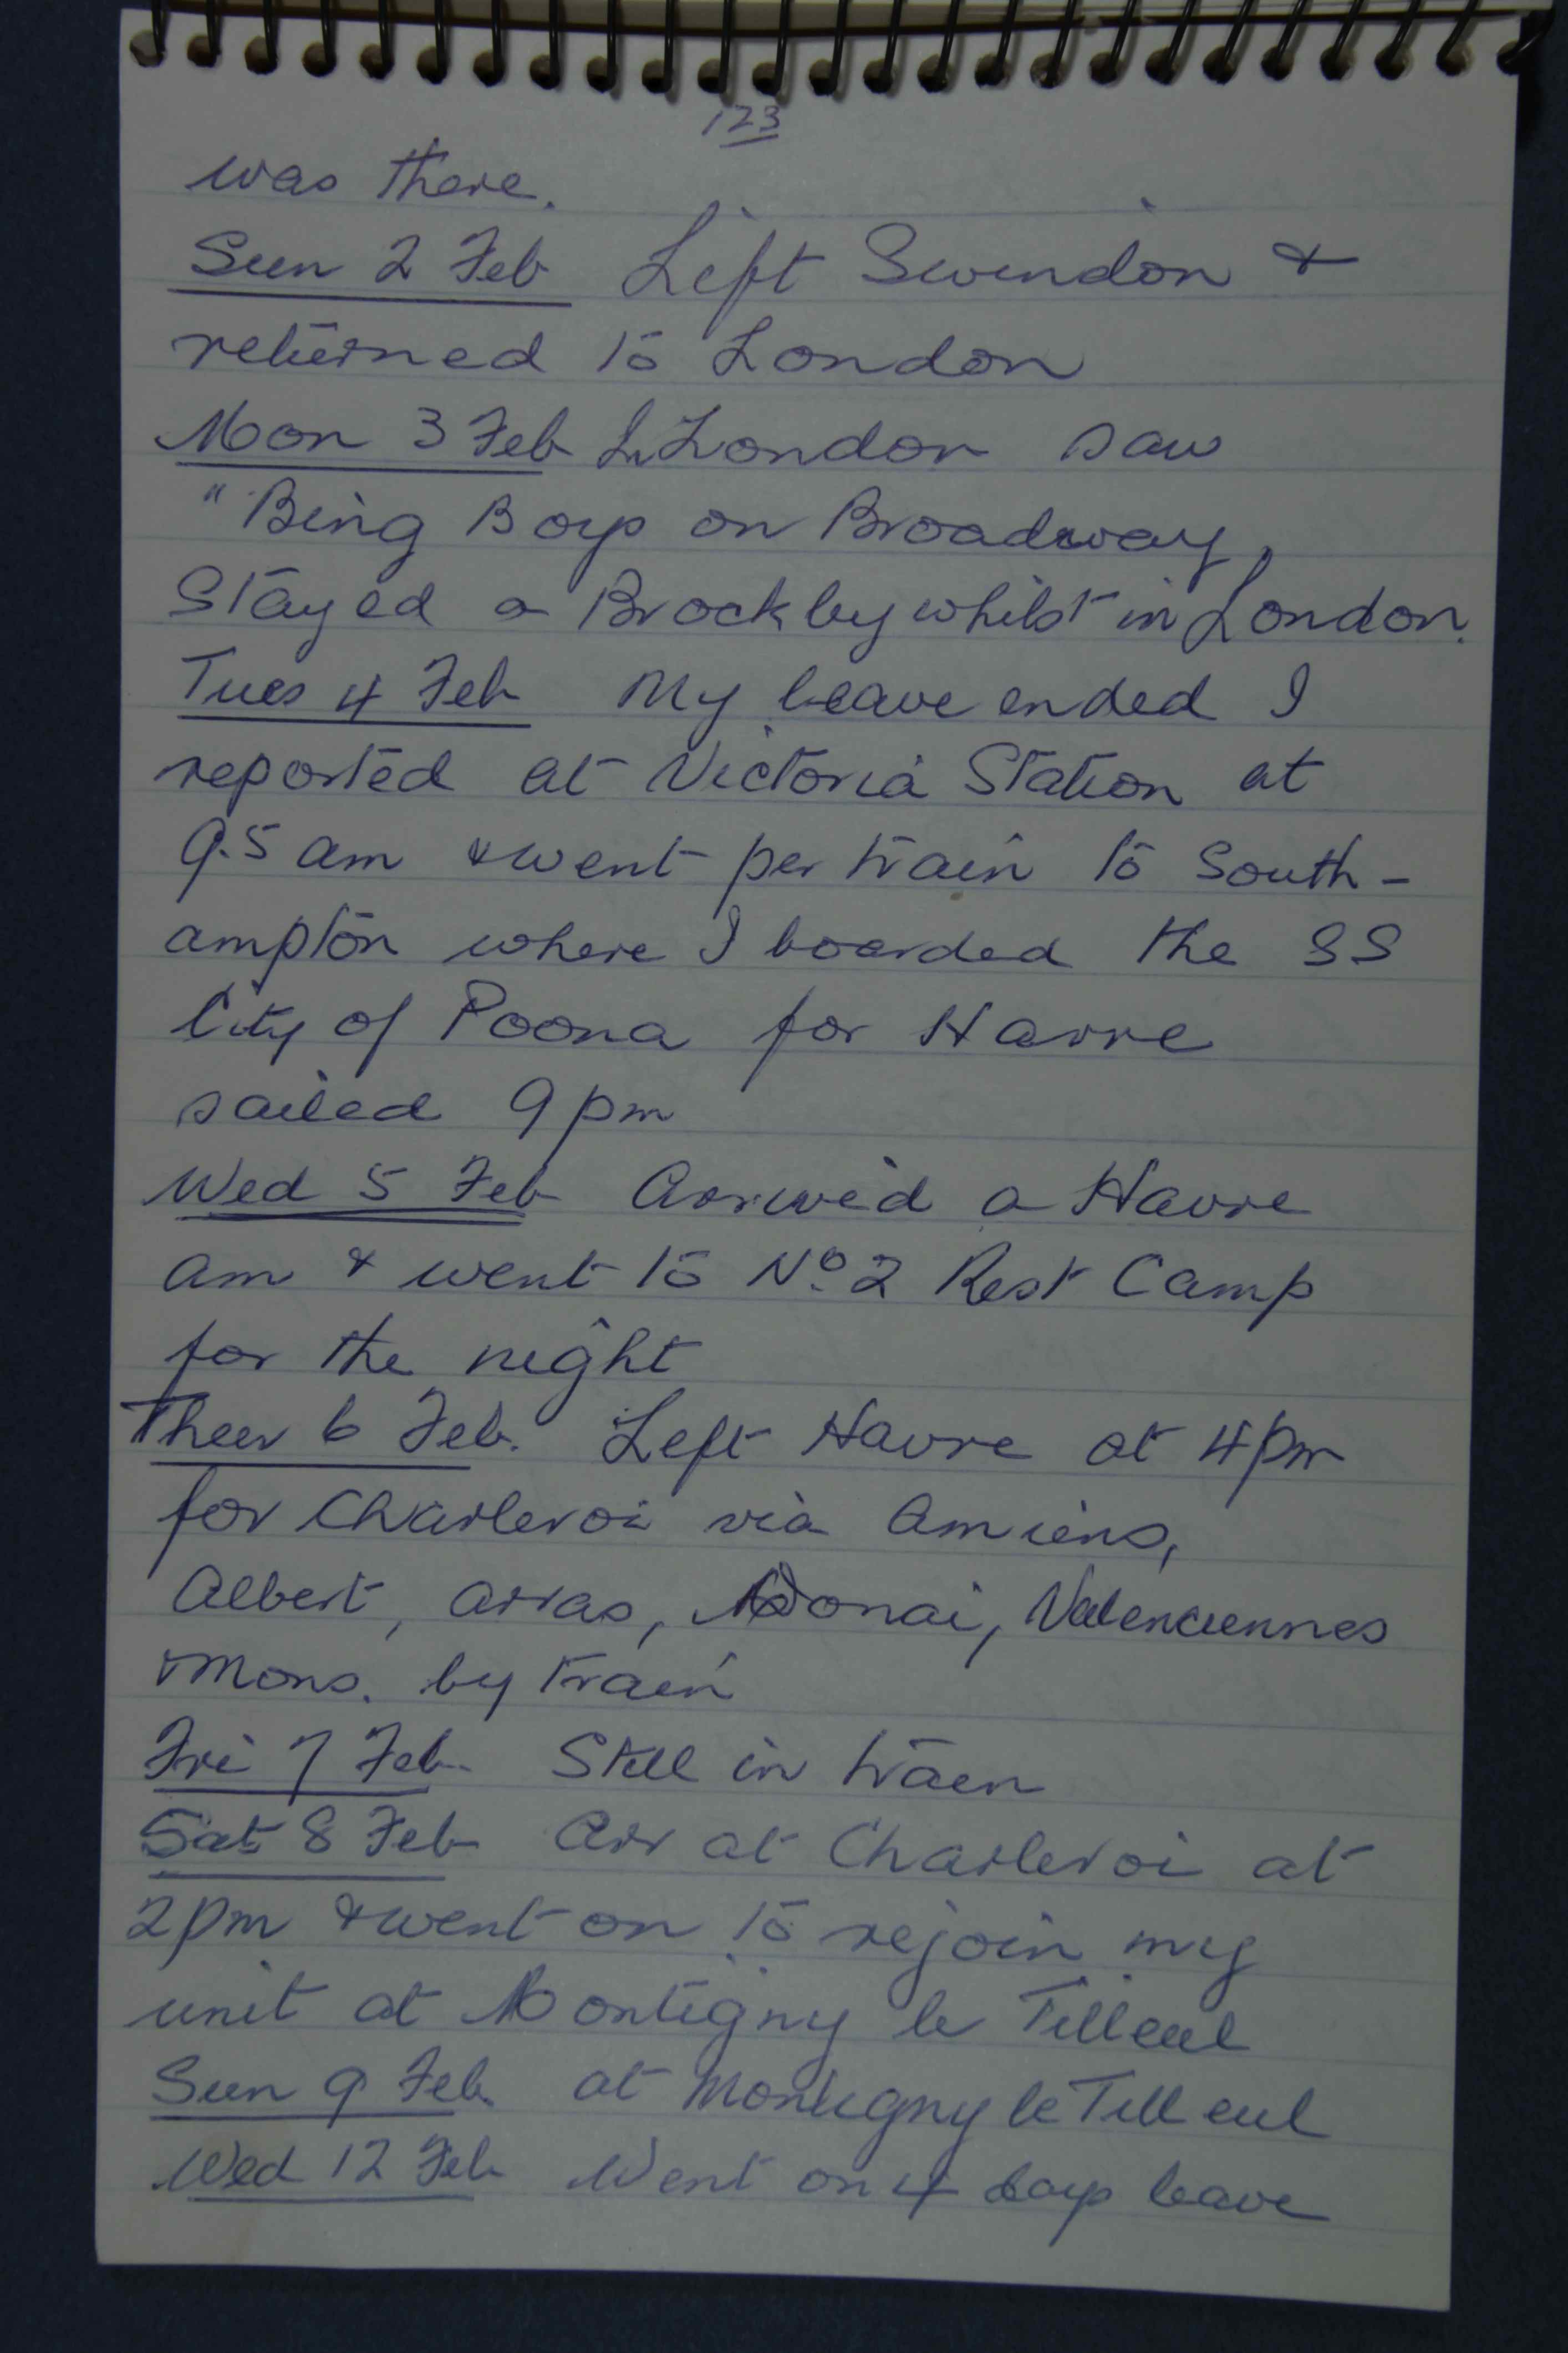 123
was there.
Sun 2 Feb Left Swindon &
returned to London
Mon 3 Feb In London saw
"Bing Boys on Broadway,
Stayed a Brockley whilst in London.
Tues 4 Feb My leave ended I
reported at Victoria Station at
9.5 am & went per train to South-
ampton where I boarded the SS
City of Poona for Havre
sailed 9 pm
Wed 5 Feb Arrived a Havre
am & went to No. 2 Rest Camp
for the night
Thur 6 Feb. Left Havre at 4 pm
for Charleroi via Amiens,
Albert, Arras, Douai, Valenciennes
& Mons. by train
Fri 7 Feb. Still in train
Sat 8 Feb Arr at Charleroi at
2 pm & went on to rejoin my
unit at Montigny le Tilleul
Sun 9 Feb. at Montigny le Tilleul
Wed 12 Feb Went on 4 days leave